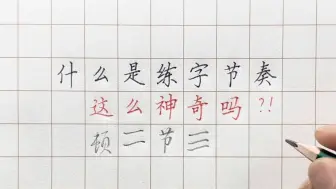 什么是练字节奏
这么神奇吗？！
顿二节三